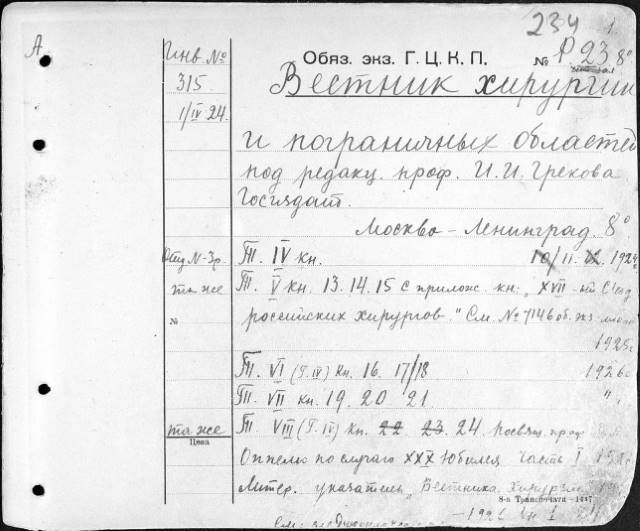 234 1
А
Инв. №
315
1/IV 24.
Обяз. экз. Г. Ц. К. П. № Р. 23 8°
Вестник хирургии
и пограничных областей
под редакц. проф. И. И. Грекова
Госиздат.
Москва – Ленинград. 8°
Т. IV кн. 10/11. 12. 1924
та же Т. V кн. 13. 14. 15 с прилож. кн: „XVII-ый Съезд
№ российских хирургов." См. № 7146 об. экз.
1925г
Т. VI (Г. IV) кн. 16. 17/18 1926
Т. VII кн. 19. 20 21 "
та же Т. VIII (Г. IV) кн. 22 23. 24. посвящ. проф
Цена
Оппелю по случаю XXX юбилея часть I
Литер. указатель „Вестника Хирургии
8-я Транспечати—1447
См.